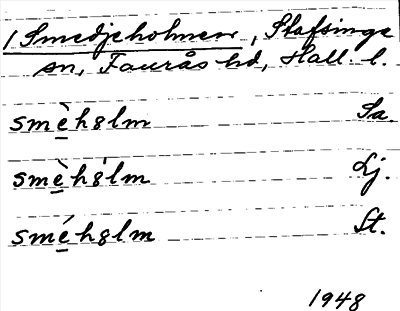 /Smedjeholmen, Stafsinge
sn, Faurås hd, Hall. l.
smè̲hꝸlm Sa.
smè̲hꝸ́lm Lj.
smé̲hꝸlm St.
1948